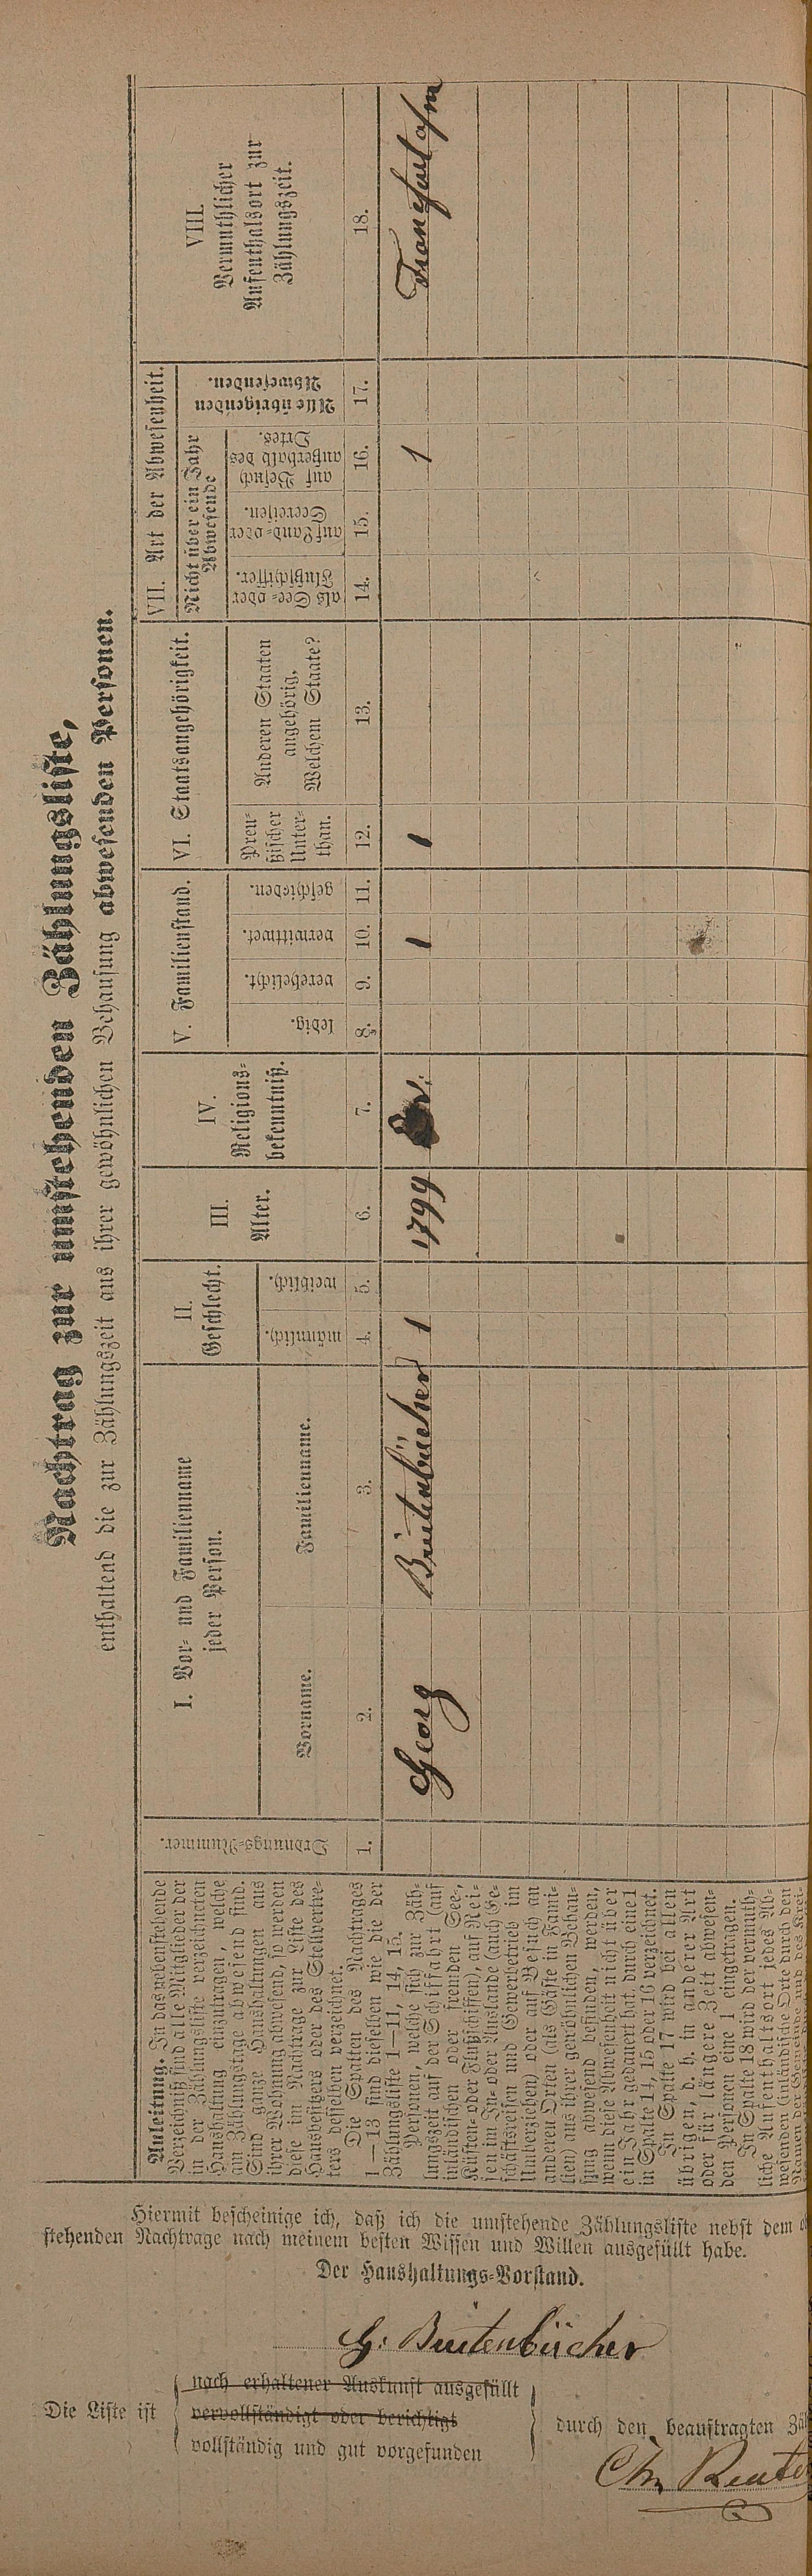 Nachtrag zur umstehenden Zählungsliste,
enthaltend die zur Zählungszeit aus ihrer gewöhnlichen Behausung abwesenden Personen.
Anleitung. In das nebenstehende
Verzeichniß sind alle Mitglieder der
in der Zählungsliste verzeichneten
Haushaltung einzutragen, welche
am Zählungstage abwesend sind.
Sind ganze Haushaltungen aus
ihrer Wohnung abwesend, so werden
diese im Nachtrage zur Liste des
Hausbesitzers oder des Stellvertre-
ters desselben verzeichnet.
Die Spalten des Nachtrages
1—13 sind dieselben wie die der
Zählungsliste 1—11, 14, 15.
Personen, welche sich zur Zäh-
lungszeit auf der Schiffahrt (auf
inländischen oder fremden See-,
Küsten- oder Flußschiffen), auf Rei-
sen im In- oder Auslande (auch Ge-
schäftsreisen und Gewerbebetrieb im
Umherziehen) oder auf Besuch an
anderen Orten (als Gäste in Fami-
lien) aus ihrer gewöhnlichen Behau-
sung abwesend befinden, werden,
wenn diese Abwesenheit nicht über
ein Jahr gedauert hat, durch eine 1
in Spalte 14, 15 oder 16 verzeichnet.
In Spalte 17 wird bei allen
übrigen, d. h. in anderer Art
oder für längere Zeit abwesen-
den Personen eine 1 eingetragen.
In Spalte 18 wird der vermuth-
liche Aufenthaltsort jedes Ab-
wesenden (inländische Orte durch den
Namen der Gemeinde und des Krei-
Ordnungs-Nummer.
1.
I. Vor- und Familienname
jeder Person.
Vorname.
2.
Familienname.
3.
II.
Geschlecht.
männlich.
4.
weiblich.
5.
III.
Alter.
6.
IV.
Religions-
bekenntniß.
7.
V. Familienstand.
ledig.
8.
verehelicht.
9.
verwittwet.
10.
geschieden.
11.
VI. Staatsangehörigkeit.
Preu-
ßischer
Unter-
than.
12.
Anderen Staaten
angehörig.
Welchem Staate?
13.
VII. Art der Abwesenheit.
Nicht über ein Jahr
Abwesende
als See- oder
Flußschiffer.
14.
auf Land- oder
Seereisen.
15.
auf Besuch
außerhalb des
Ortes.
16.
Alle übrigenden
Abwesenden.
17.
VIII.
Vermuthlicher
Aufenthaltsort zur
Zählungszeit.
18.
Georg Breitenbücher 1 1799 Ev. 1 1 1 Francfurt a/m
Hiermit bescheinige ich, daß ich die umstehende Zählungsliste nebst dem
stehenden Nachtrage nach meinem besten Wissen und Willen ausgefüllt habe.
Der Haushaltungs-Vorstand.
G. Breitenbücher
Die Liste ist
nach erhaltener Auskunft ausgefüllt
vervollständigt oder berichtigt
vollständig und gut vorgefunden
durch den beauftragten Zäh
Chr. Reuter